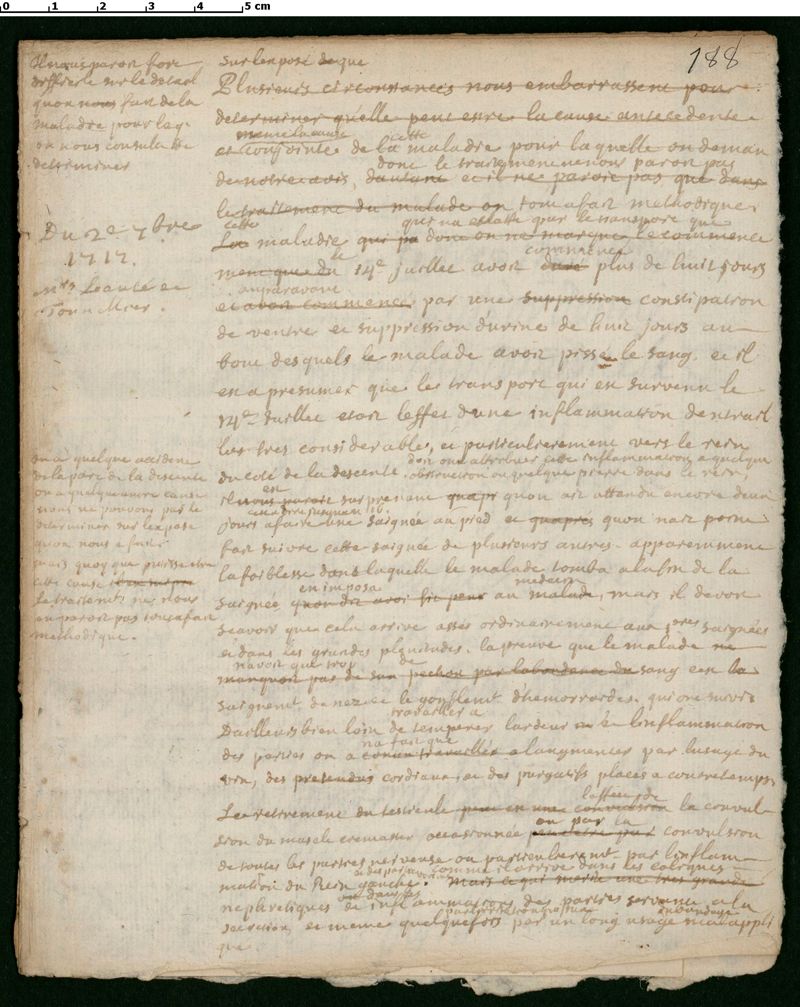 188
Il nous paroit fort
difficile sur le detail
quon nous fait de la
maladie pour laq.
on nous consulte de
determiner
Du 2e 7bre
1717.
sur lexposé de que
Plusieurs circonstances nous embarrassent pour
determiner quelle peut estre la cause antecedente
meme la cause cette
et conjointe de la maladie pour laquelle on deman
donc le traitement ne nous paroit pas
de notre avis, dautant et il ne paroit pas que dans
le traitement du malade on tout a fait methodique
cette qui na esclatté par le transport que
La maladie qui pa donc on ne marque le commence
le commencé
ment que du 14e juillet avoit duré plus de huit jours
auparavant
et avoit commencé par une suppression constipation
de ventre et suppression durine de huit jours au
bout desquels le malade avoit pissé le sang. et il
en a presumer que les transport qui est survenu le
14e Juillet etoit leffet dune inflammation dentrail
les tres considerable, et particulierement vers le rein
du coté de la descente. doit on attribuer cette inflammation a quelque
obstruction ou quelque pierre dans le rein,
est
il nous paroit surprenant quapr quon ait attendu encore deux
cest a dire jusquau 16.
jours a faire une saignée au pied et quaprés quon nait point
fait suivre cette saignée de plusieurs autres. apparemment
la foiblesse dans laquelle le malade tomba a la fin de la
en imposa medecin
saignée quon dit avoi fit peur au malade, mais il devoit
scavoir que cela arrive assés ordinairement aux pres saignées
et dans les grandes plenitudes. la preuve que le malade ne
navoit que trop de
manquoit pas de son pechoit par labondance du sang est la
saignemt de nez et le gonflemt dhemorroides. qui ont suivis
travailler a
Dailleurs bien loin de temperer lardeur et linflammation
na fait que
des parties on a travaillé a laugmenter par lusage du
vin, des pretendus cordiaux, et des purgatifs placés a contretemps
leffet de
Le retirement du testicule peut est une convulsion la convul
ou par la
sion du muscle cremaster occasionnée peut etre par convulsion
de toutes les parties nerveuses ou particulieremt par linflam
comme il arrive dans les coliques
mation du Rein gauche. Mais ce qui merite une tres grande
nephretiques et inflammations des parties servant a la
secretion, et meme quelquefois par un long usage
que
ou a quelque accident
de la part de la descente
ou a quelque autre cause
nous ne pouvons pas le
determiner sur lexposé
quon nous a fait
mais quoy que puisse etre
cette cause
le traitemt ne nous
en paroit pas tout a fait
methodique.